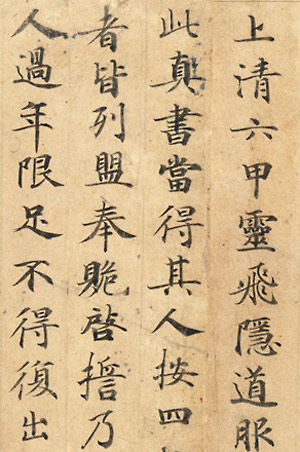 上清六甲靈飛隱道服
此真書當得其人按四
者皆列盟奉賝啓擔乃
人過年限足不得復出